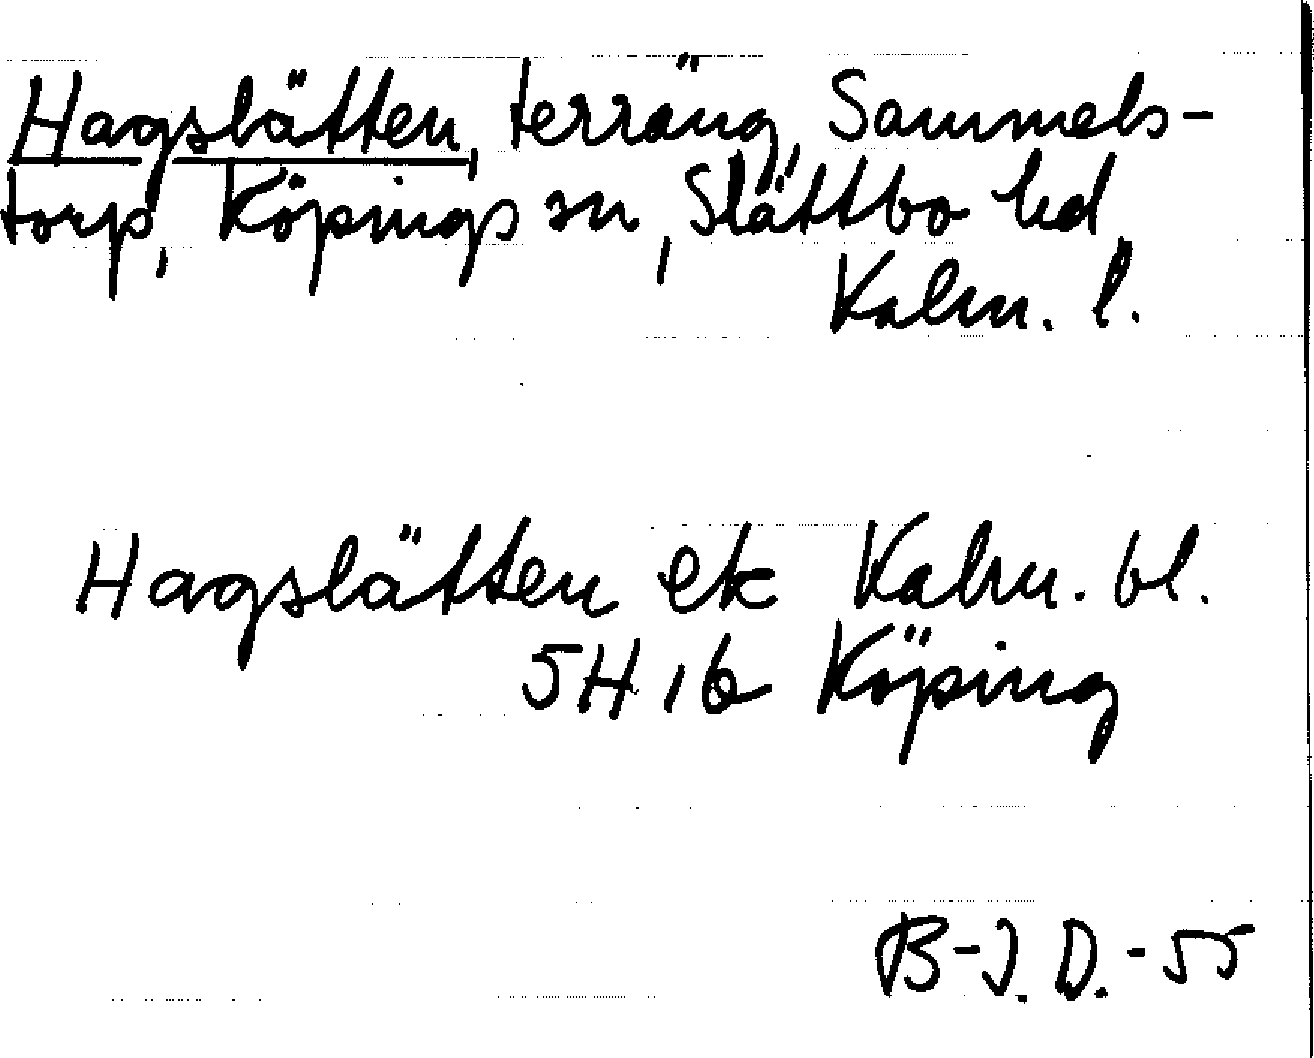 Hagslätten, terräng, Sammels-
torp, Köpings sn, Slättbo hd,
Kalm. l.
Hagslätten ek Kalm. bl.
5H 1b Köping
B-J. D. -55